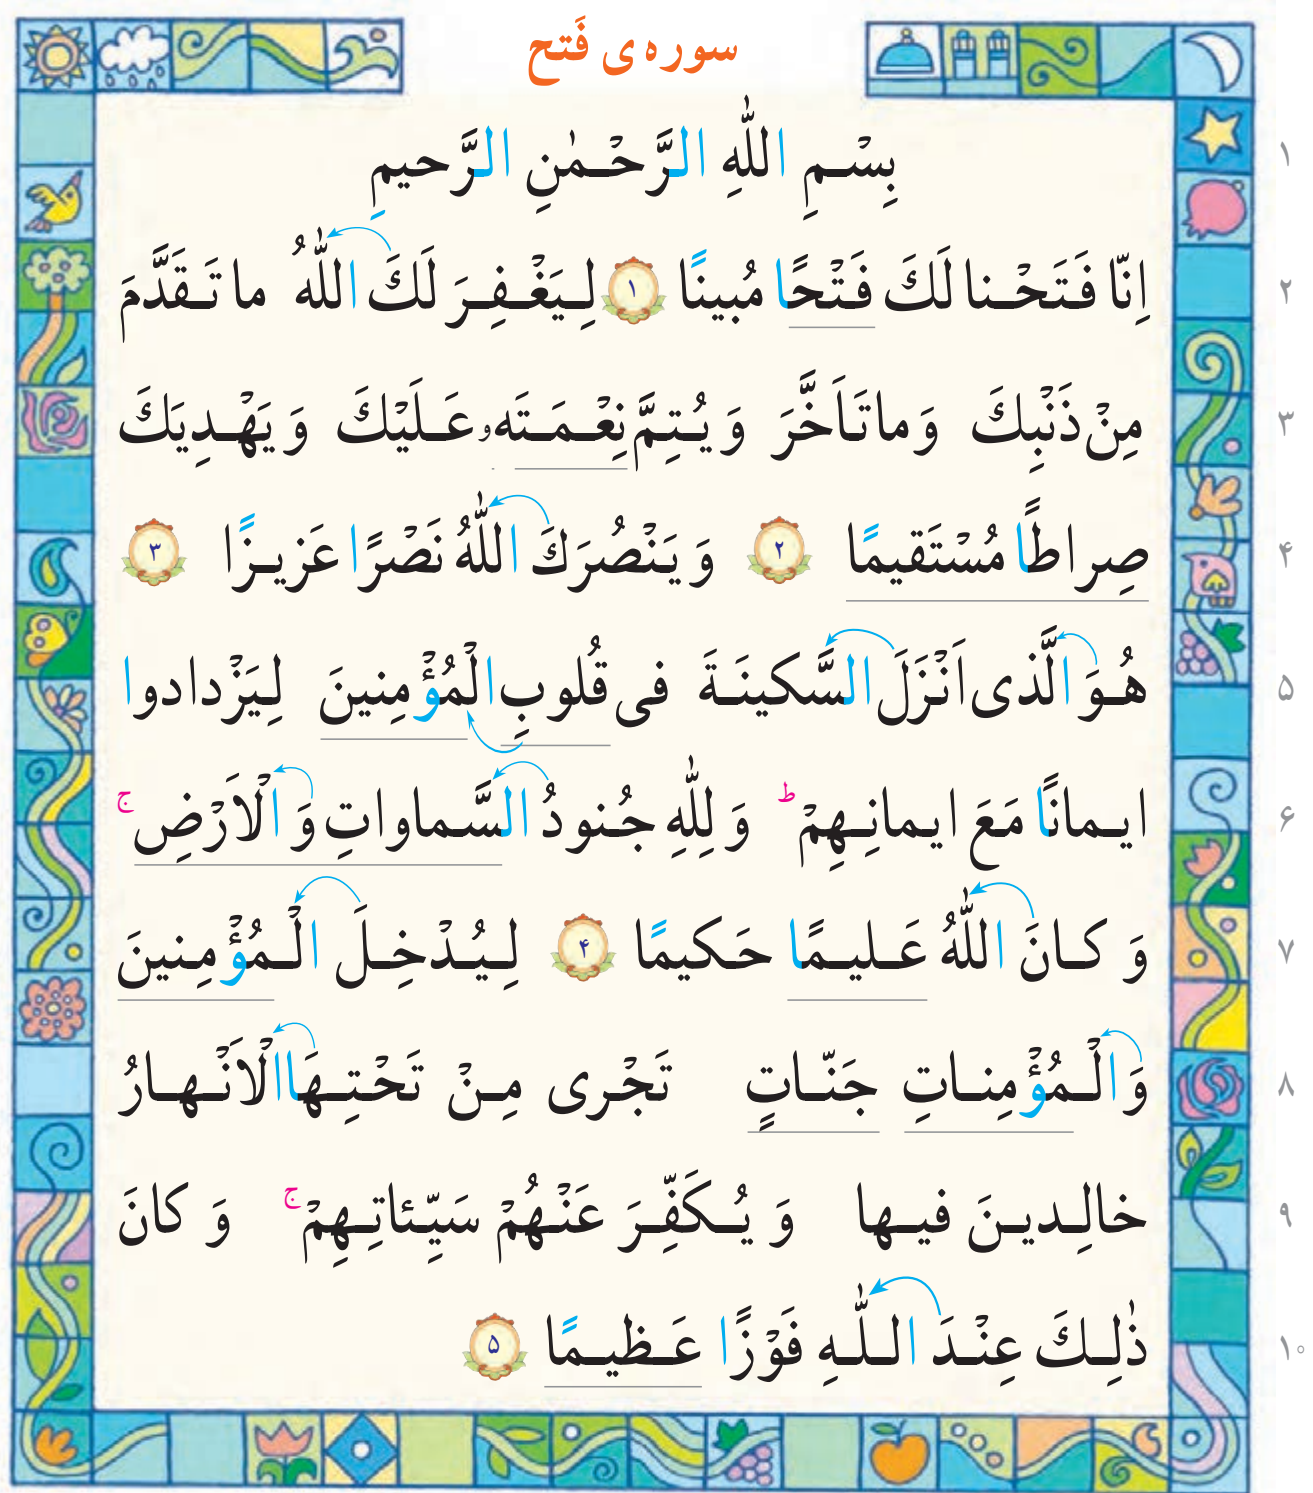 سوره‌ی فَتح
بِسْمِ اللّٰهِ الرَّحْمٰنِ الرَّحیمِ ۱
اِنّا فَتَحْنا لَكَ فَتْحًا مُبینًا ۱ لِیَغْفِرَ لَكَ اللّٰهُ ما تَقَدَّمَ ۲
مِنْ ذَنْبِكَ وَ ما تَاَخَّرَ وَ یُتِمَّ نِعْمَتَه و عَلَیْكَ وَ یَهْدِیَكَ ۳
صِراطًا مُسْتَقیمًا ۲ وَ یَنْصُرَكَ اللّٰهُ نَصْرًا عَزیزًا ۳ ۴
هُوَ الَّذی اَنْزَلَ السَّكینَةَ فی قُلوبِ الْمُؤْمِنینَ لِیَزْدادوا ۵
ایمانًا مَعَ ایمانِهِمْ ط وَ لِلّٰهِ جُنودُ السَّماواتِ وَ الْاَرْضِ ج ۶
وَ كانَ اللّٰهُ عَلیمًا حَكیمًا ۴ لِیُدْخِلَ الْمُؤْمِنینَ ۷
وَ الْمُؤْمِناتِ جَنّاتٍ تَجْری مِنْ تَحْتِهَا الْاَنْهارُ ۸
خالِدینَ فیها وَ یُكَفِّرَ عَنْهُمْ سَیِّئاتِهِمْ ج وَ كانَ ۹
ذٰلِكَ عِنْدَ اللّٰهِ فَوْزًا عَظیمًا ۵ ۱۰